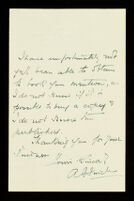 I have unfortunately not
yet been able to obtain
the book you mention, as
I do not know if it is
possible to buy a copy &
I do not know the
publishers.
Thanking you for your
kindness
Yours sincerely